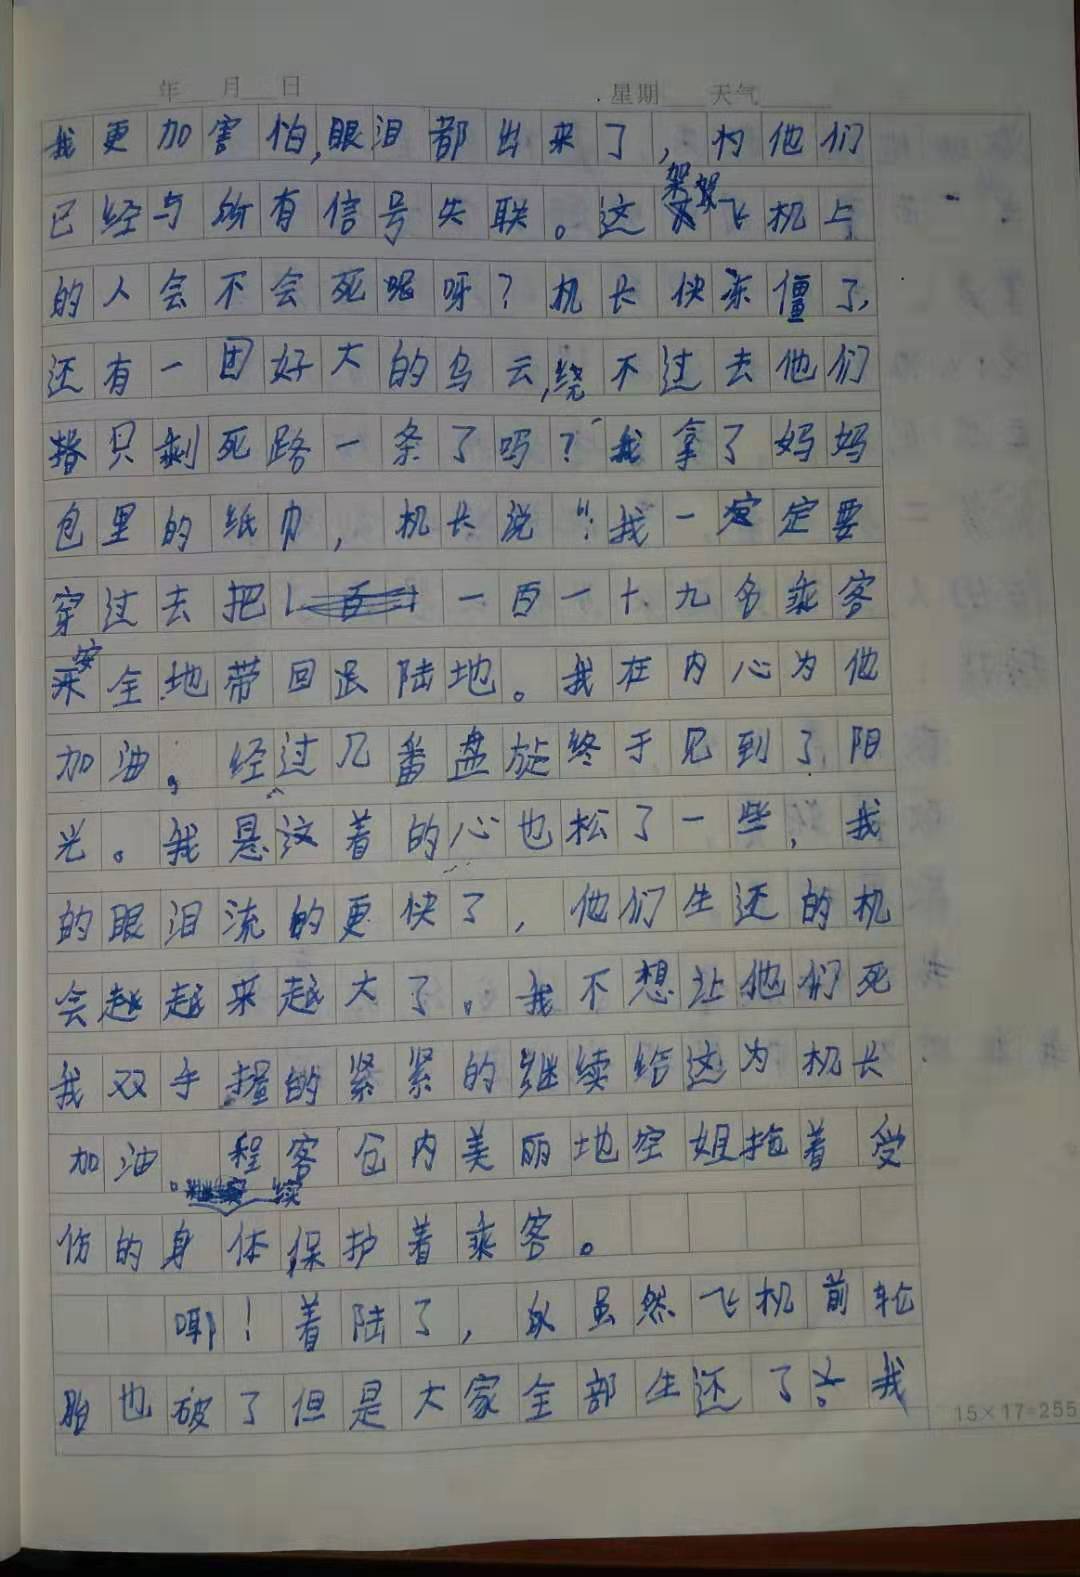 年 月 日 星期 天气
我更加害怕,眼泪都出来了,为他们
已经与所有信号失联。这架飞机上
的人会不会死呢呀？机长快冻僵了,
还有一团好大的乌云,绕不过去他们
只剩死路一条了吗？我拿了妈妈
包里的纸巾,机长说：“我一定要
穿过去把一百一十九名乘客
安全地带回陆地。我在内心为他
加油。经过几番盘旋终于见到了阳
光。我悬这着的心也松了一些,我
的眼泪流的更快了,他们生还的机
会越越来越大了。我不想让他们死
我双手握的紧紧的继续给这为机长
加油。客仓内美丽地空姐拖着受
伤的身体保护着乘客。
嘢！着陆了,虽然飞机前轮
胎也破了但是大家全部生还了。我
15×17=255